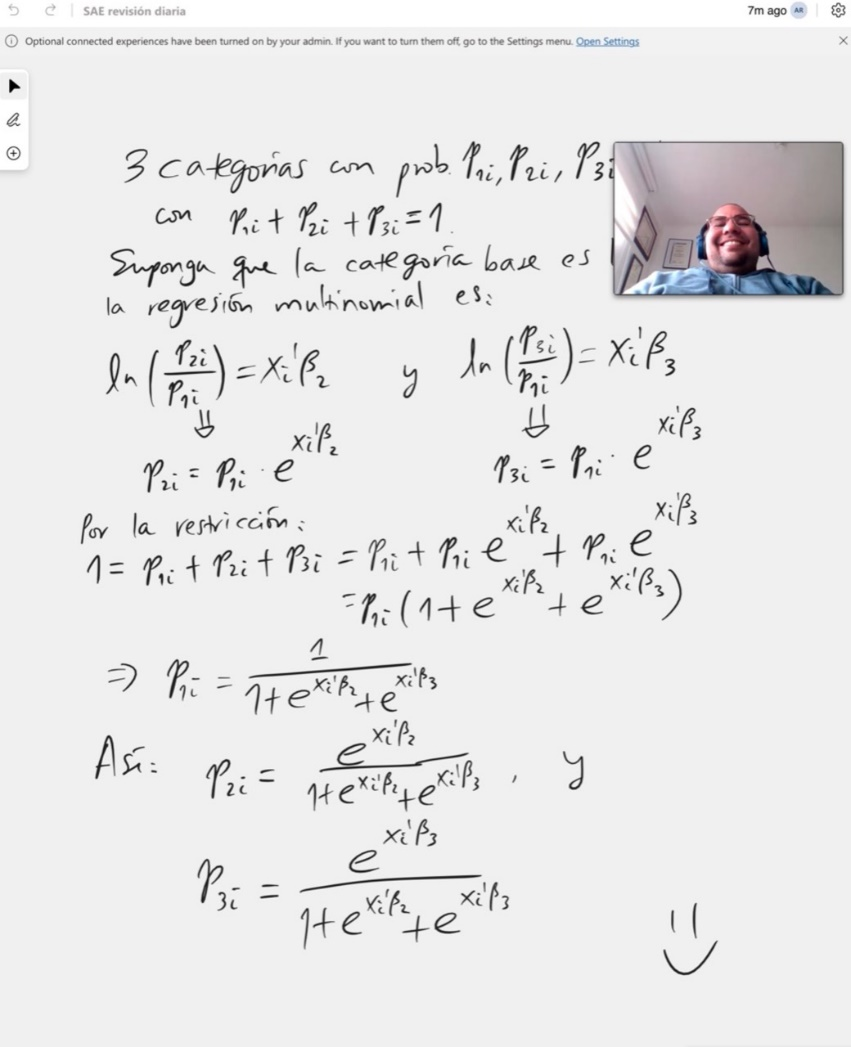 SAE revisión diaria
7m ago AR
Optional connected experiences have been turned on by your admin. If you want to turn them off, go to the Settings menu. Open Settings
3 categorías con prob. P₁ᵢ, P₂ᵢ, P₃ᵢ
con P₁ᵢ + P₂ᵢ + P₃ᵢ = 1.
Suponga que la categoría base es
la regresión multinomial es:
ln(P₂ᵢ/P₁ᵢ) = xᵢ'β₂ y ln(P₃ᵢ/P₁ᵢ) = xᵢ'β₃
⇓ ⇓
P₂ᵢ = P₁ᵢ · e^(xᵢ'β₂) P₃ᵢ = P₁ᵢ · e^(xᵢ'β₃)
Por la restricción:
1 = P₁ᵢ + P₂ᵢ + P₃ᵢ = P₁ᵢ + P₁ᵢ e^(xᵢ'β₂) + P₁ᵢ e^(xᵢ'β₃)
= P₁ᵢ (1 + e^(xᵢ'β₂) + e^(xᵢ'β₃))
⇒ P₁ᵢ = 1/(1 + e^(xᵢ'β₂) + e^(xᵢ'β₃))
Así: P₂ᵢ = e^(xᵢ'β₂)/(1 + e^(xᵢ'β₂) + e^(xᵢ'β₃)), y
P₃ᵢ = e^(xᵢ'β₃)/(1 + e^(xᵢ'β₂) + e^(xᵢ'β₃))